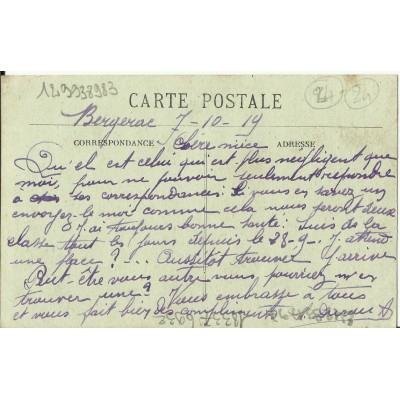 1289938983
24 24
CARTE POSTALE
Bergerac 7-10-19
CORRESPONDANCE Chère nièce ADRESSE
Qu'el est celui qui est plus négligent que
moi, pour ne pouvoir seulement repondre
a correspondances. Si vous en savez un
envoyez le moi comme cela nous seront deux
toujours bonne santé. Suis de la
classe tout les jours depuis le 28-9. J'attend
une place? -.. Aussitot trouver j'arrive
Peut-être vous autre vous pourriez m'en
trouver une? Vous embrasse a tous
et vous fait bien des compliments.